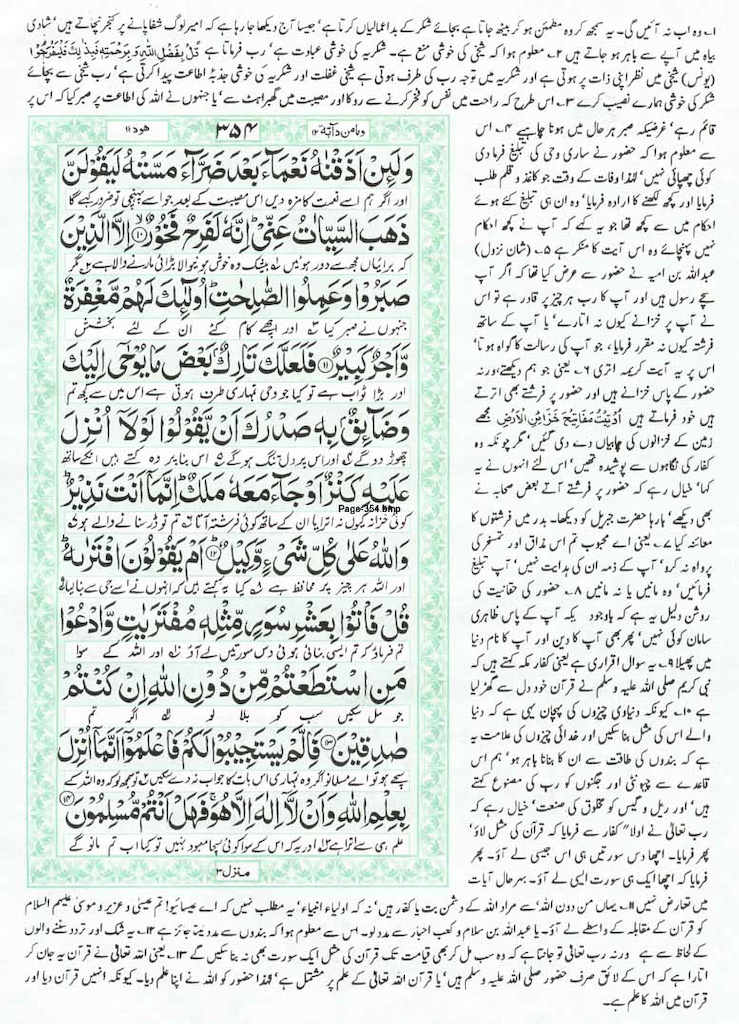 ۱۔ وہ اب نہ آئیں گی۔ یہ سمجھ کر وہ مطمئن ہو کر بیٹھ جاتا ہے بجائے شکر کے بداعمالیاں کرتا ہے، جیسا آج دیکھا جا رہا ہے کہ امیر لوگ شفا پانے پر کنجر نچاتے ہیں، شادی
بیاہ میں آپے سے باہر ہو جاتے ہیں ۲۔ معلوم ہوا کہ شیخی کی خوشی منع ہے۔ شکریہ کی خوشی عبادت ہے، رب فرماتا ہے قُلْ بِفَضْلِ اللّٰهِ وَ بِرَحْمَتِهٖ فَبِذٰلِكَ فَلْيَفْرَحُوْا
(یونس) شیخی میں نظر اپنی ذات پر ہوتی ہے اور شکریہ میں توجہ رب کی طرف ہوتی ہے شیخی غفلت اور شکریہ کی خوشی جذبۂ اطاعت پیدا کرتی ہے، رب شیخی سے بچائے
شکر کی خوشی ہمارے نصیب کرے ۳۔ اس طرح کہ راحت میں نفس کو فخر کرنے سے روکا اور مصیبت میں گھبراہٹ سے، یا جنہوں نے اللہ کی اطاعت پر صبر کیا کہ اس پر
ومامن دآبۃ ۱۲
۳۵۴
ھود ۱۱
وَلَئِنْ اَذَقْنٰهُ نَعْمَآءَ بَعْدَ ضَرَّآءَ مَسَّتْهُ لَيَقُوْلَنَّ
اور اگر ہم اسے نعمت کا مزہ دیں اس مصیبت کے بعد جو اسے پہنچی تو ضرور کہے گا
ذَهَبَ السَّيِّاٰتُ عَنِّيْ ؕ اِنَّهٗ لَفَرِحٌ فَخُوْرٌ ۙ۱۰ اِلَّا الَّذِيْنَ
کہ برائیاں مجھ سے دور ہوئیں بیشک وہ خوش ہونیوالا بڑائی مارنے والا ہے مگر
صَبَرُوْا وَعَمِلُوا الصّٰلِحٰتِ ؕ اُولٰٓئِكَ لَهُمْ مَّغْفِرَةٌ
جنہوں نے صبر کیا اور اچھے کام کئے ان کے لئے بخشش
وَّاَجْرٌ كَبِيْرٌ ۱۱ فَلَعَلَّكَ تَارِكٌۢ بَعْضَ مَا يُوْحٰٓى اِلَيْكَ
اور بڑا ثواب ہے تو کیا جو وحی تمہاری طرف ہوتی ہے اس میں سے کچھ تم
وَضَآئِقٌۢ بِهٖ صَدْرُكَ اَنْ يَّقُوْلُوْا لَوْلَآ اُنْزِلَ
چھوڑ دو گے اور اس پر دل تنگ ہو گے اس بنا پر وہ کہتے ہیں انکے ساتھ
عَلَيْهِ كَنْزٌ اَوْ جَآءَ مَعَهٗ مَلَكٌ ؕ اِنَّمَآ اَنْتَ نَذِيْرٌ ؕ
کوئی خزانہ کیوں نہ اترا یا ان کے ساتھ کوئی فرشتہ آتا تم تو ڈر سنانے والے ہو
Page-354.bmp
وَاللّٰهُ عَلٰى كُلِّ شَيْءٍ وَّكِيْلٌ ؕ۱۲ اَمْ يَقُوْلُوْنَ افْتَرٰىهُ ؕ
اور اللہ ہر چیز پر محافظ ہے کیا یہ کہتے ہیں کہ انہوں نے اسے جی سے بنا لیا
قُلْ فَاْتُوْا بِعَشْرِ سُوَرٍ مِّثْلِهٖ مُفْتَرَيٰتٍ وَّادْعُوْا
تم فرماؤ کہ تم ایسی بنائی ہوئی دس سورتیں لے آؤ اور اللہ کے سوا
مَنِ اسْتَطَعْتُمْ مِّنْ دُوْنِ اللّٰهِ اِنْ كُنْتُمْ
جو مل سکیں سب کو بلا لو اگر تم
صٰدِقِيْنَ ۱۳ فَاِلَّمْ يَسْتَجِيْبُوْا لَكُمْ فَاعْلَمُوْٓا اَنَّمَآ اُنْزِلَ
سچے ہو تو اے مسلمانو اگر وہ تمہاری اس بات کا جواب نہ دے سکیں تو سمجھ لو کہ وہ اللہ کے
بِعِلْمِ اللّٰهِ وَاَنْ لَّآ اِلٰهَ اِلَّا هُوَ ۚ فَهَلْ اَنْتُمْ مُّسْلِمُوْنَ ۱۴
علم ہی سے اترا ہے اور یہ کہ اس کے سوا کوئی سچا معبود نہیں تو کیا اب تم مانو گے
منزل ۳
قائم رہے، غرضیکہ صبر ہر حال میں ہونا چاہیے ۴۔ اس
سے معلوم ہوا کہ حضور نے ساری وحی کی تبلیغ فرما دی
کوئی چھپائی نہیں، لہٰذا وفات کے وقت جو کاغذ و قلم طلب
فرمایا اور کچھ لکھنے کا ارادہ فرمایا، وہ ان ہی تبلیغ کئے ہوئے
احکام میں سے کچھ تھا جو یہ کہے کہ آپ نے کچھ احکام
نہیں پہنچائے وہ اس آیت کا منکر ہے ۵۔ (شان نزول)
عبداللہ بن امیہ نے حضور سے عرض کیا تھا کہ اگر آپ
سچے رسول ہیں اور آپ کا رب ہر چیز پر قادر ہے تو اس
نے آپ پر خزانے کیوں نہ اتارے، یا آپ کے ساتھ
فرشتہ کیوں نہ مقرر فرمایا، جو آپ کی رسالت کا گواہ ہوتا،
اس پر یہ آیت کریمہ اتری ۶۔ یعنی جو ہم دیکھتے، ورنہ
حضور کے پاس خزانے ہیں اور حضور پر فرشتے بھی اترتے
ہیں خود فرماتے ہیں اُوْتِيْتُ مَفَاتِيْحَ خَزَآئِنِ الْاَرْضِ مجھے
زمین کے خزانوں کی چابیاں دے دی گئیں، مگر چونکہ وہ
کفار کی نگاہوں سے پوشیدہ تھیں، اس لئے انہوں نے یہ
کہا، خیال رہے کہ حضور پر فرشتے آتے بعض صحابہ نے
بھی دیکھے، بارہا حضرت جبریل کو دیکھا۔ بدر میں فرشتوں کا
معائنہ کیا ۷۔ یعنی اے محبوب تم اس مذاق اور تمسخر کی
پرواہ نہ کرو، آپ کے ذمہ ان کی ہدایت نہیں، آپ تبلیغ
فرمائیں، وہ مانیں یا نہ مانیں ۸۔ حضور کی حقانیت کی
روشن دلیل یہ ہے کہ باوجود یکہ آپ کے پاس ظاہری
سامان کوئی نہیں، پھر بھی آپ کا دین اور آپ کا نام دنیا
میں پھیلا ۹۔ یہ سوال اقراری ہے یعنی کفار مکہ کہتے ہیں کہ
نبی کریم صلی اللہ علیہ وسلم نے قرآن خود دل سے گھڑ لیا
ہے ۱۰۔ کیونکہ دنیاوی چیزوں کی پہچان یہی ہے کہ دنیا
والے اس کی مثل بنا سکیں اور خدائی چیزوں کی علامت یہ
ہے کہ بندوں کی طاقت سے ان کا بنانا باہر ہو، ہم اس
قاعدے سے چیونٹی اور جگنوں کو رب کی مصنوع کہتے
ہیں، اور ریل و گیس کو مخلوق کی صنعت، خیال رہے کہ
رب تعالیٰ نے اولاً کفار سے فرمایا کہ قرآن کی مثل لاؤ،
پھر فرمایا۔ اچھا دس سورتیں ہی اس جیسی لے آؤ۔ پھر
فرمایا کہ اچھا ایک ہی سورت ایسی لے آؤ۔ بہرحال آیات
میں تعارض نہیں ۱۱۔ یہاں من دون اللہ سے مراد اللہ کے دشمن بت یا کفار ہیں، نہ کہ اولیاء انبیاء، یہ مطلب نہیں کہ اے عیسائیو! تم عیسیٰ و عزیر و موسیٰ علیہم السلام
کو قرآن کے مقابلہ کے واسطے لے آؤ۔ یا عبداللہ بن سلام و کعب احبار سے مدد لو۔ اس سے معلوم ہوا کہ بندوں سے مدد لینا جائز ہے ۱۲۔ یہ شک اور تردد سننے والوں
کے لحاظ سے ہے ورنہ رب تعالیٰ تو جانتا ہے کہ وہ سب مل کر بھی قیامت تک قرآن کی مثل ایک سورت بھی نہ بنا سکیں گے ۱۳۔ یعنی اللہ تعالیٰ نے قرآن یہ جان کر
اتارا ہے کہ اس کے لائق صرف حضور صلی اللہ علیہ وسلم ہیں، یا قرآن اللہ تعالیٰ کے علم پر مشتمل ہے، لہٰذا حضور کو اللہ نے اپنا علم دیا۔ کیونکہ انہیں قرآن دیا اور
قرآن میں اللہ کا علم ہے۔